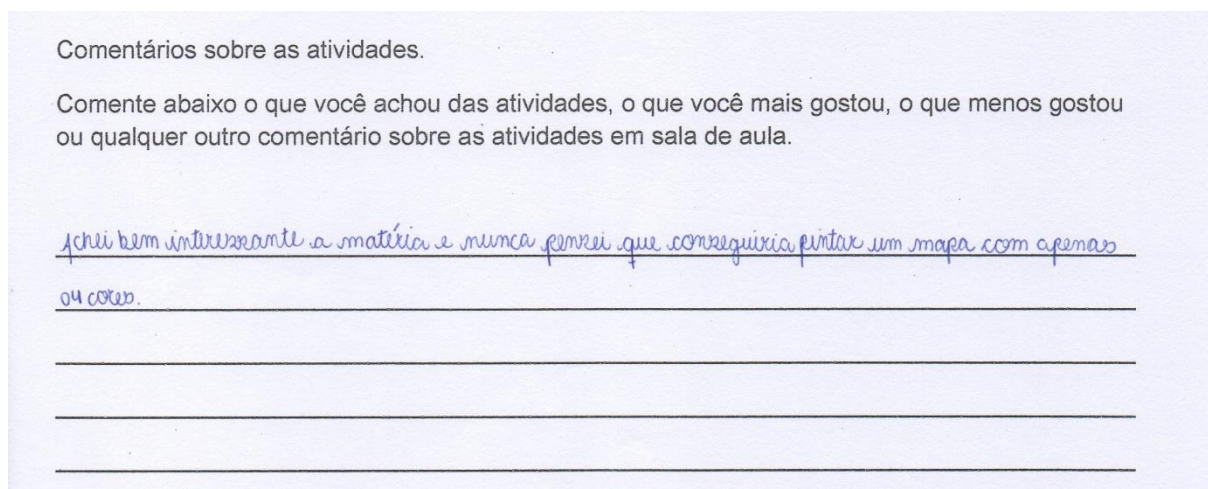 Comentários sobre as atividades.
Comente abaixo o que você achou das atividades, o que você mais gostou, o que menos gostou
ou qualquer outro comentário sobre as atividades em sala de aula.
Achei bem interessante a matéria e nunca pensei que conseguiria pintar um mapa com apenas
04 cores.